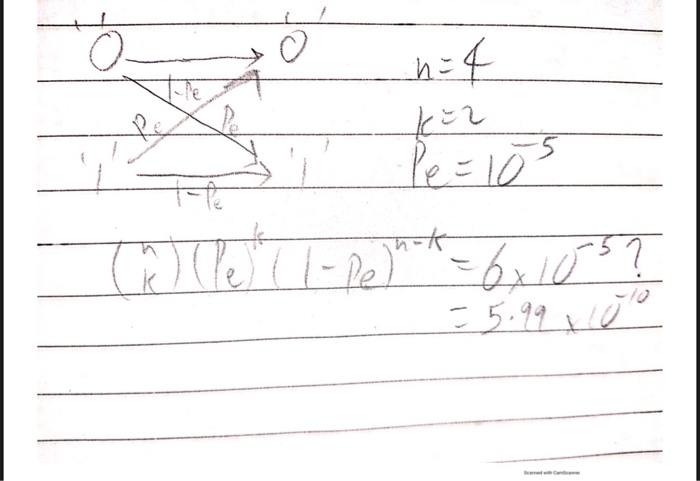 '0' '0'
n=4
1-Pe
Pe Pe
k=2
'1' '1'
Pe=10^-5
1-Pe
(n k)(Pe)^k(1-Pe)^n-k = 6x10^-5?
= 5.99 x10^-10
Scanned with CamScanner